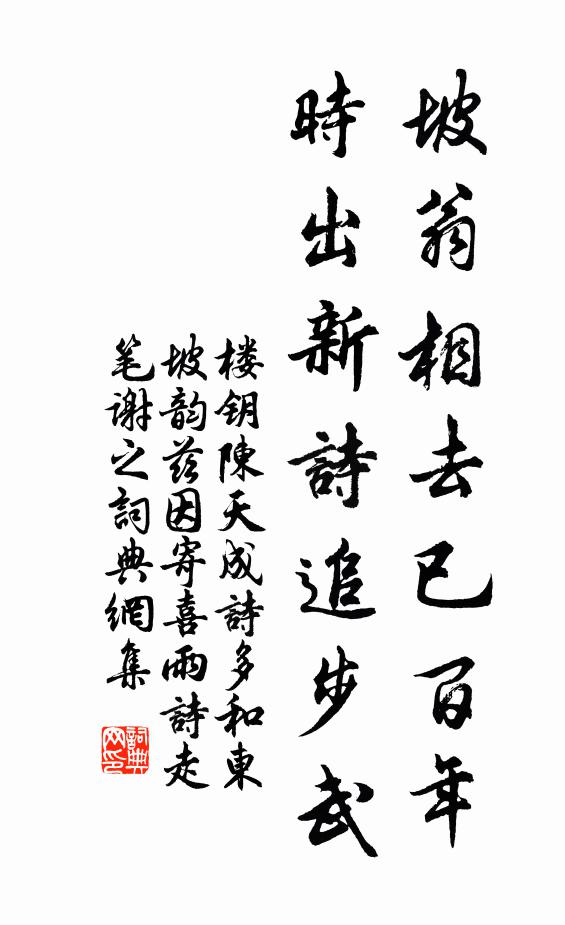 坡翁相去已百年
時出新詩追步武
楼钥陳天成詩多和東
坡韵兹因寄喜雨詩走
笔谢之詞典網集
詞典
网印